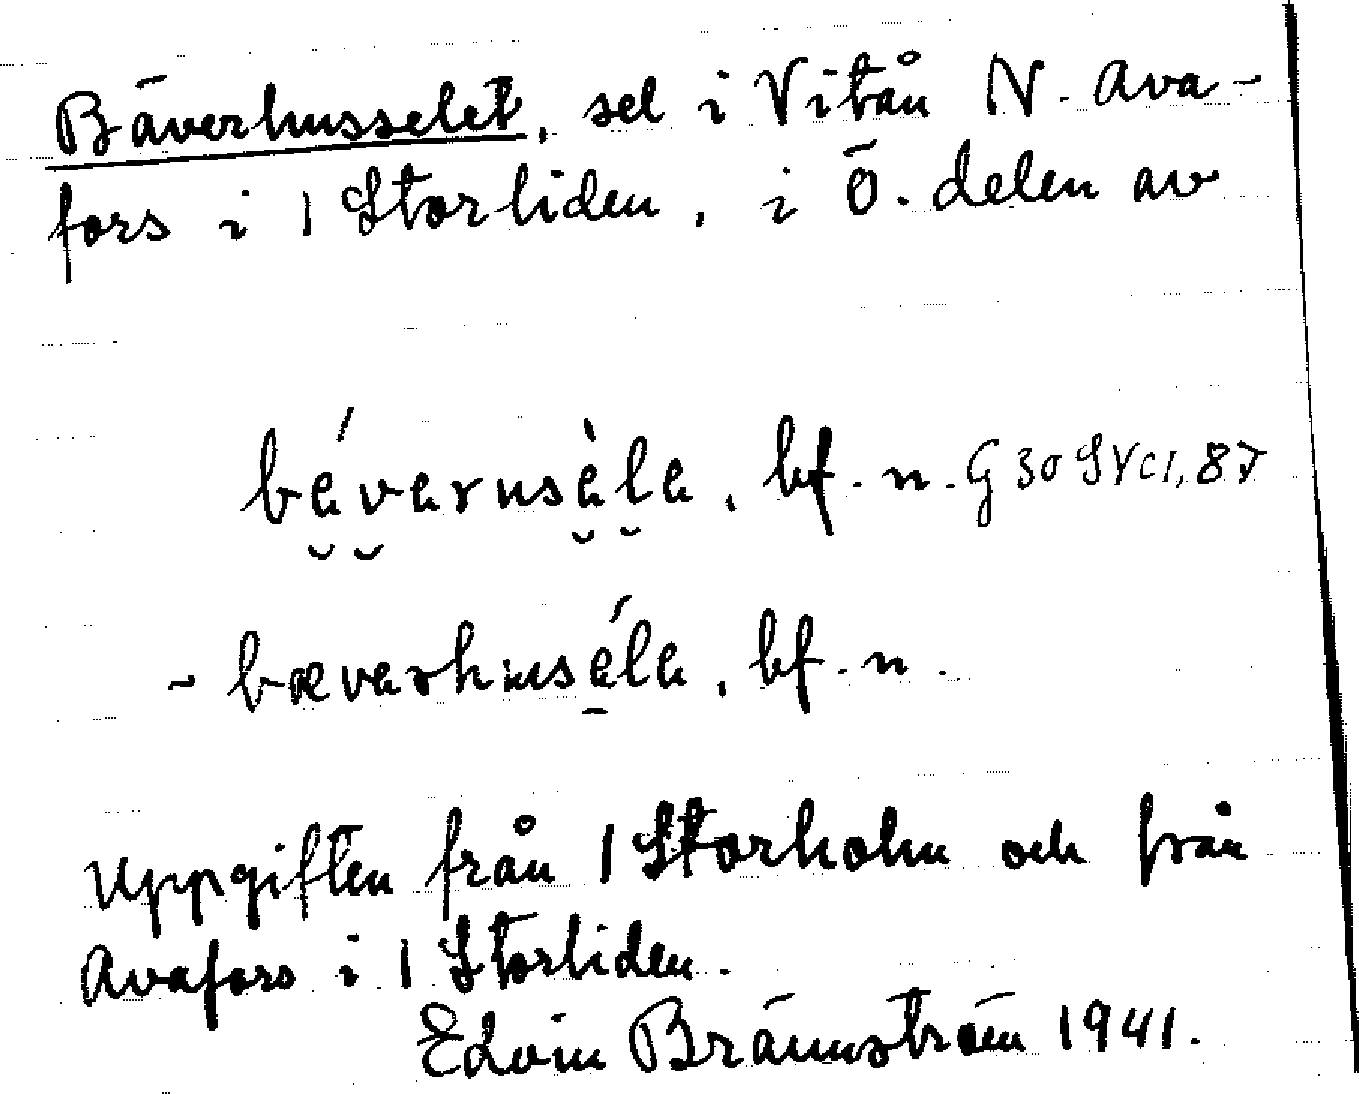 Bäverhusselet, sel i Vitån N. Ava-
fors i 1 Storliden, i Ö. delen av
bévarusèla, bf. n. G 30 SVCI, 87
- bæverhuséla, bf. n.
Uppgiften från 1 Storholm och från
Avafors i 1 Storliden.
Edvin Brännström 1941.